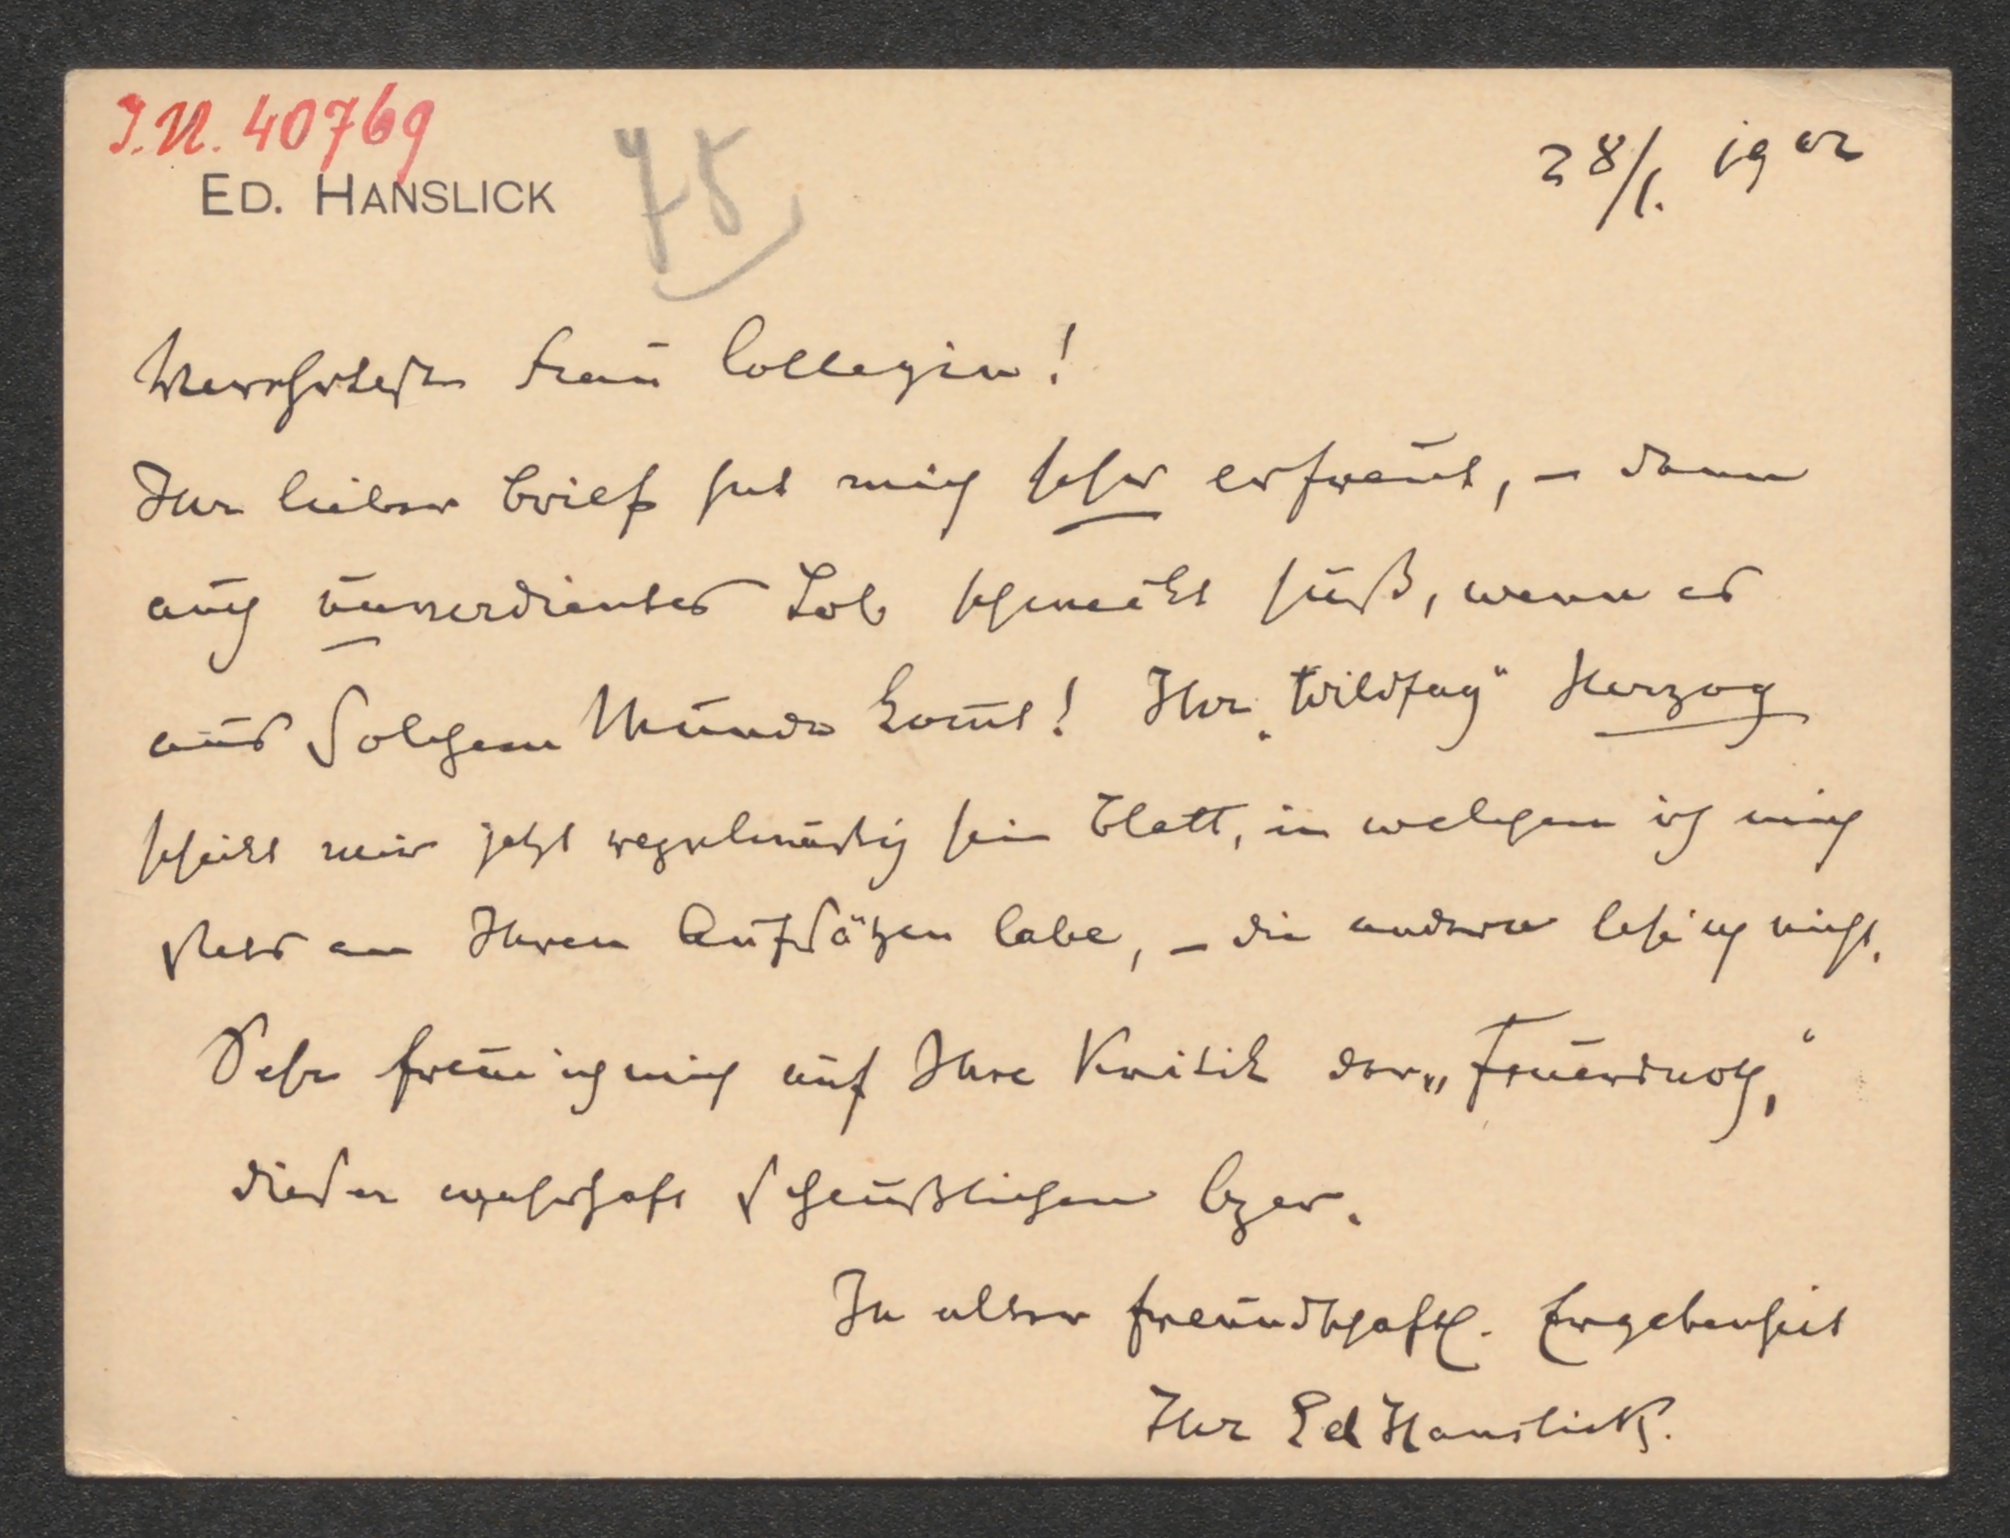 I.N. 40769
ED. HANSLICK
75
28/1. 1902
Verehrteste Frau Collegin!
Ihr lieber Brief hat mich sehr erfreut, – denn
auch unverdientes Lob schmeckt süß, wenn es
aus solchem Munde komt! Ihr „Wildfang“ Herzog
schickt mir jetzt regelmäßig sein Blatt, in welchem ich mich
stets an Ihren Aufsätzen labe, – die andern lese ich nicht.
Sehr freue ich mich auf Ihre Kritik der „Feuersnoth,“
dieser wahrhaft scheußlichen Oper.
In alter freundschaftl. Ergebenheit
Ihr Ed Hanslick.